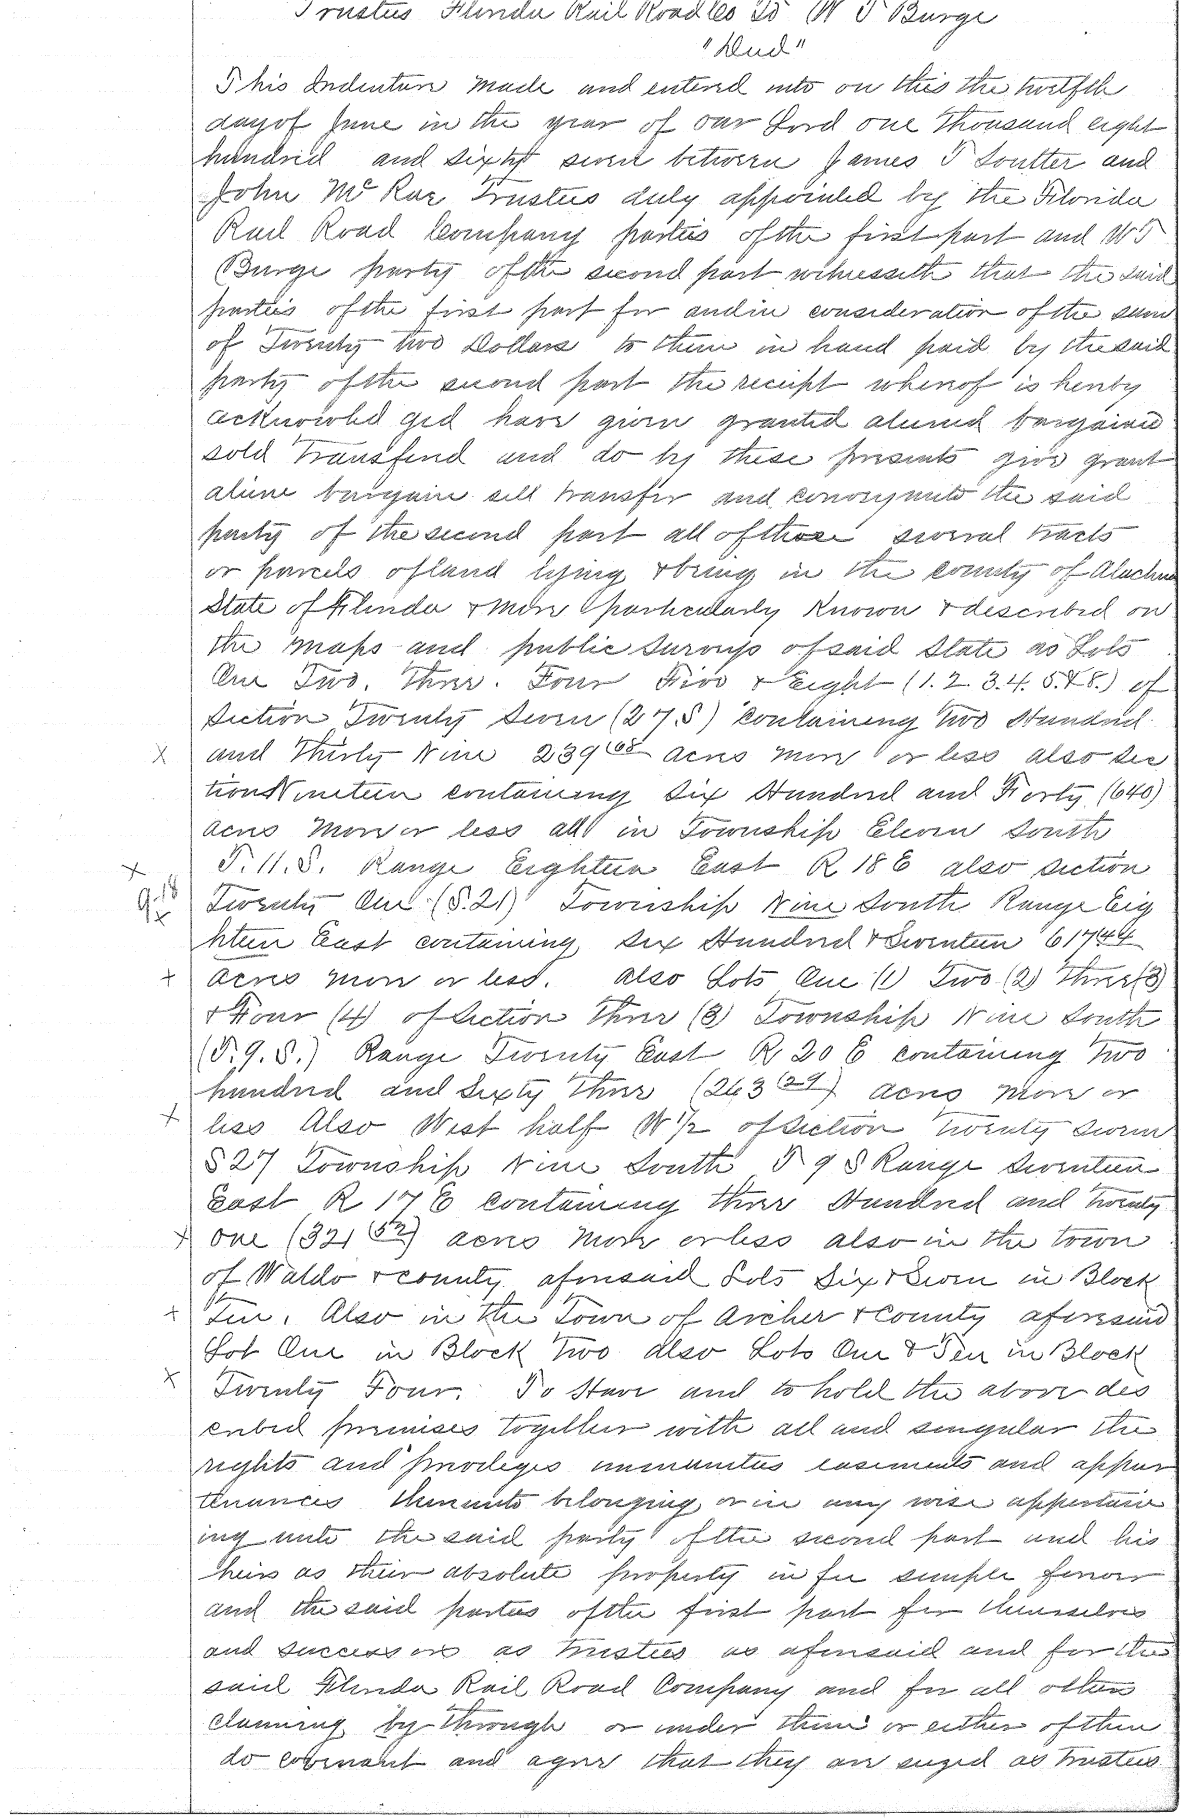 Trustees Florida Rail Road Co To W T Burge
"Deed"
This Indenture made and entered into on this the twelfth
day of June in the year of our Lord one thousand eight
hundred and sixty seven between James T Soutter and
John McRae Trustees duly appointed by the Florida
Rail Road Company parties of the first part and W T
Burge party of the second part witnesseth that the said
parties of the first part for and in consideration of the sum
of Twenty two Dollars to them in hand paid by the said
party of the second part the receipt whereof is hereby
acknowled ged have given granted aliened bargained
sold transfered and do by these presents give grant
aliene bargain sell transfer and convey unto the said
party of the second part all of those several tracts
or parcels of land lying & being in the county of Alachua
State of Florida & more particularly known & described on
the maps and public surveys of said State as Lots
One Two. Three. Four Five & Eight (1.2.3.4.5.&8.) of
Section Twenty Seven (27.S) containing two Hundred
x and Thirty Nine 239 68 acres more or less also sec
tion Nineteen containing Six Hundred and Forty (640)
acres more or less all in Township Eleven South
x T.11.S. Range Eighteen East R 18 E also section
9-18 x Twenty One (S.21) Township Nine South Range Eig
hteen East containing Six Hundred & Seventeen 617 44
x acres more or less. also Lots One (1) Two (2) Three (3)
& Four (4) of Section Three (3) Township Nine South
(T.9.S.) Range Twenty East R 20 E containing Two
hundred and Sixty Three (263 29) acres more or
x less Also West half W 1/2 of Section Twenty Seven
S 27 Township Nine South T 9 S Range Seventeen
East R 17 E containing three Hundred and twenty
x one (321 52) acres more or less also in the town
of Waldo & county aforesaid Lots Six & Seven in Block
x Ten. Also in the Town of Archer & County aforesaid
Lot One in Block Two also Lots One & Ten in Block
x Twenty Four. To Have and to hold the above des
cribed premises together with all and singular the
rights and privileges immunities easements and appur
tenances thereunto belonging or in any wise appertain
ing unto the said party of the second part and his
heirs as their absolute property in fee simple forever
and the said parties of the first part for themselves
and successors as trustees as aforesaid and for the
said Florida Rail Road Company and for all others
claiming by through or under them or either of them
do covenant and agree that they are seized as trustees